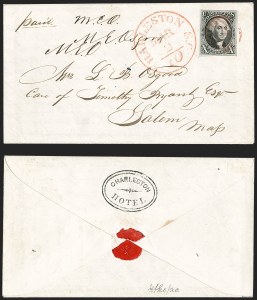 paid M.C.O
M. E. Osgood
M.E.O
CHARLESTON S.C.
10
Mrs L B Osgood
Care of Timothy Bryant Esqr
Salem
Mass
CHARLESTON
HOTEL